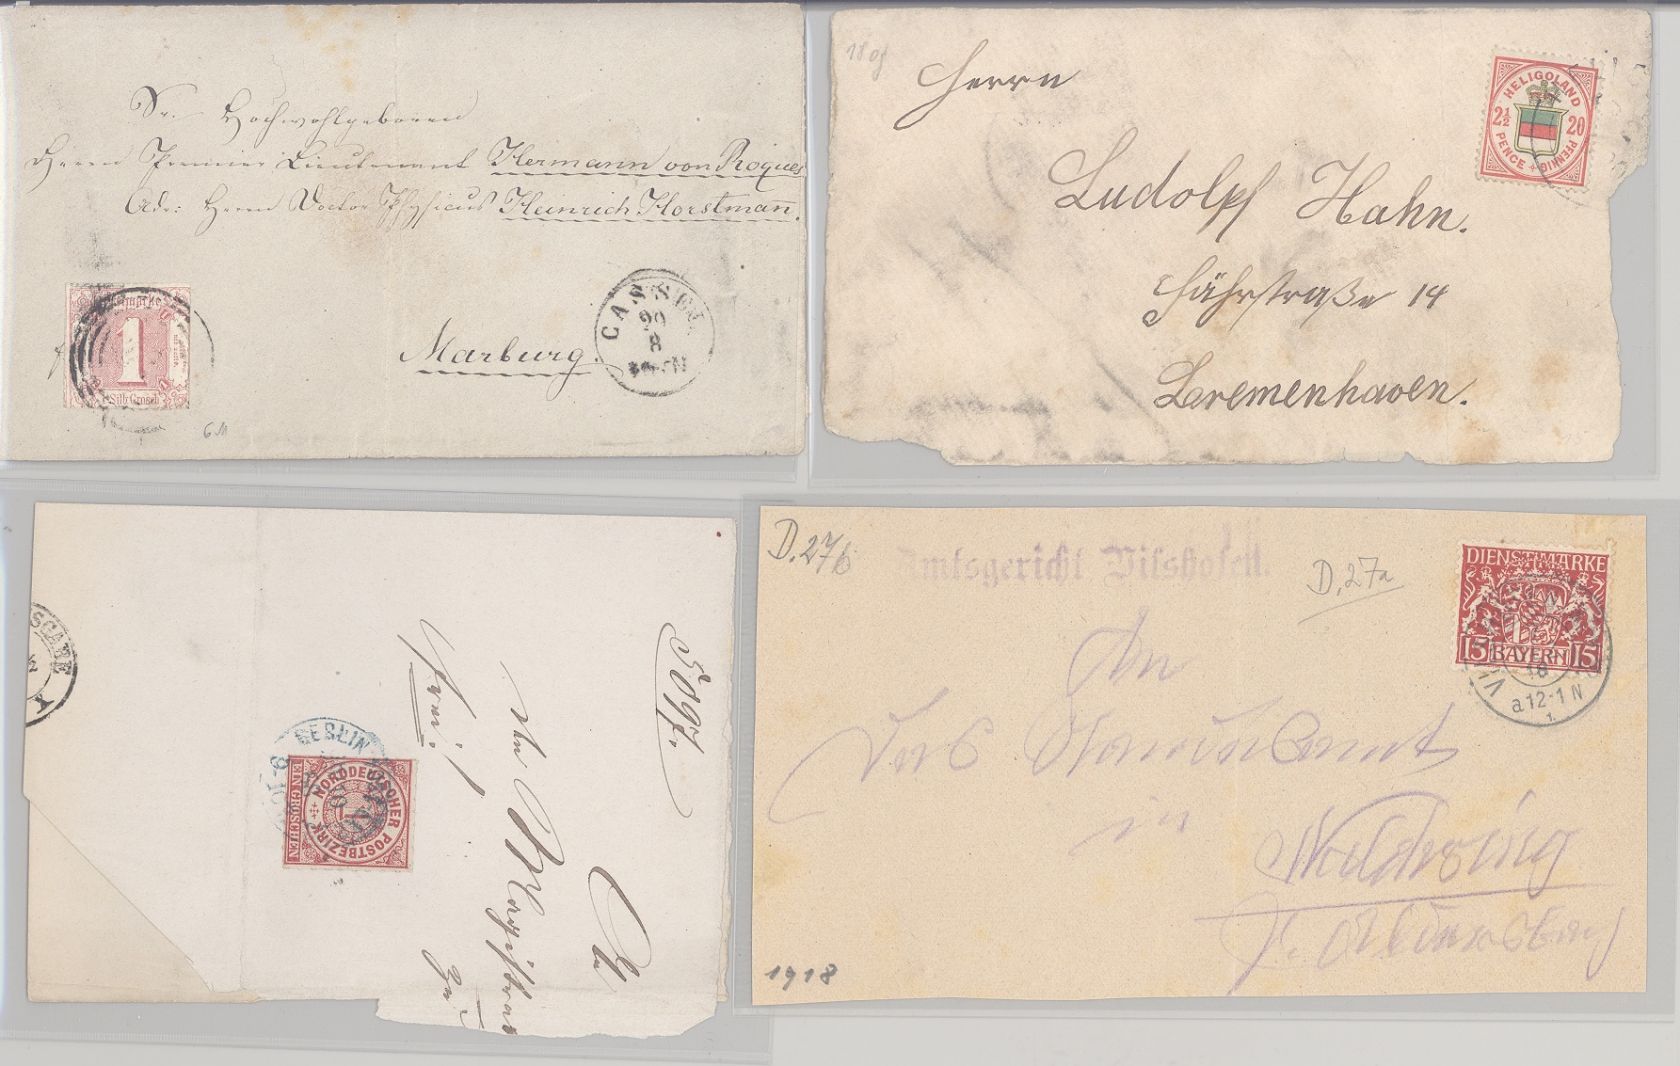 Sr. Hochwohlgeboren
Herrn Premier Lieutenant Hermann von Roques
Adr: Herrn Doctor Physicus Heinrich Horstmann.
Marburg.
CASSEL
1
Silb. Grosch
Herrn
Ludolph Hahn.
Fährstraße 14
Bremenhaven.
HELIGOLAND
2½ 20
PENCE PFENNIG
5097.
An
Magistrat
frei!
BERLIN
NORDDEUTSCHER POSTBEZIRK
EIN GROSCHEN
1
D.27b
Amtsgericht Vilshofen.
D.27a
DIENSTMARKE
15 BAYERN 15
a 12-1 N
An
das Standesamt
in
1918